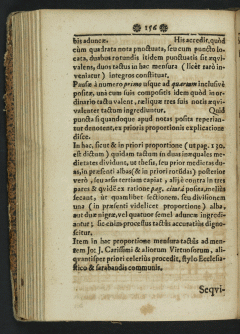 156
bis aduncæ. His accedit, quòd
cùm quadrata nota punctuata, seu cum puncto lo-
cata, duabus rotundis itidem punctuatis sit æqui-
valens, duos tactus in hac mensura (licèt rarò in-
veniatur) integros constituat.
Pausæ à numero primo usque ad quartum inclusivè
positæ, unà cum suis compositis idem quòd in or-
dinario tactu valent, reliquæ tres suis notis æqui-
valenter tactum ingrediuntur. Quid
puncta si quandoque apud notas posita reperian-
tur denotent, ex prioris proportionis explicatione
disce.
In hac, sicut & in priori proportione (ut pag. 130.
est dictum) quidam tactum in duas inæquales me-
dietates dividunt, ut thesis, seu prior medietas dua-
bus, in præsenti albas (& in priori rotundas) posterior
verò, seu arsis tertiam capiat, alij à contra in tres
pares & quidem ex ratione pag. citatâ posita, meliùs
secant, ut quamlibet sectionem, seu divisionem
una (in præsenti videlicet proportione) alba,
aut duæ nigræ, vel quatuor semel aduncæ ingredi-
antur; sic enim processus tactûs accuratiùs digno-
scitur.
Item in hac proportione mensura tactûs ad men-
tem Jo: J. Carissimi & aliorum Virtuosorum, ali-
quantisper priori celeriùs procedit, stylo Ecclesia-
stico & sarabandis communis.
Seqvi-